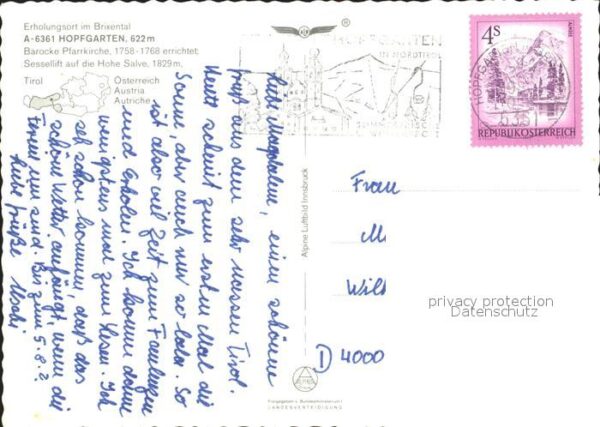 Erholungsort im Brixental
A-6361 HOPFGARTEN, 622 m
Barocke Pfarrkirche, 1758-1768 errichtet
Sessellift auf die Hohe Salve, 1829 m.
Tirol
Österreich
Austria
Autriche
®
HOPFGARTEN
4S
REPUBLIK ÖSTERREICH
Liebe Magdalena, einen schönen
Gruß aus dem sehr nassen Tirol.
Heute scheint zum ersten Mal die
Sonne, aber auch nur so lala. So
ist also viel Zeit zum Faulenzen
und Erholen. Ich komme dann
wenigstens mal zum Lesen. Ich
seh schon kommen, daß das
schöne Wetter anfängt, wenn die
Ferien um sind. Bis zum 5.8.?
liebe Grüße
Alpine Luftbild Innsbruck
Frau
M
Wil
D 4000
privacy protection
Datenschutz
Freigegeben v. Bundesministerium f.
LANDESVERTEIDIGUNG